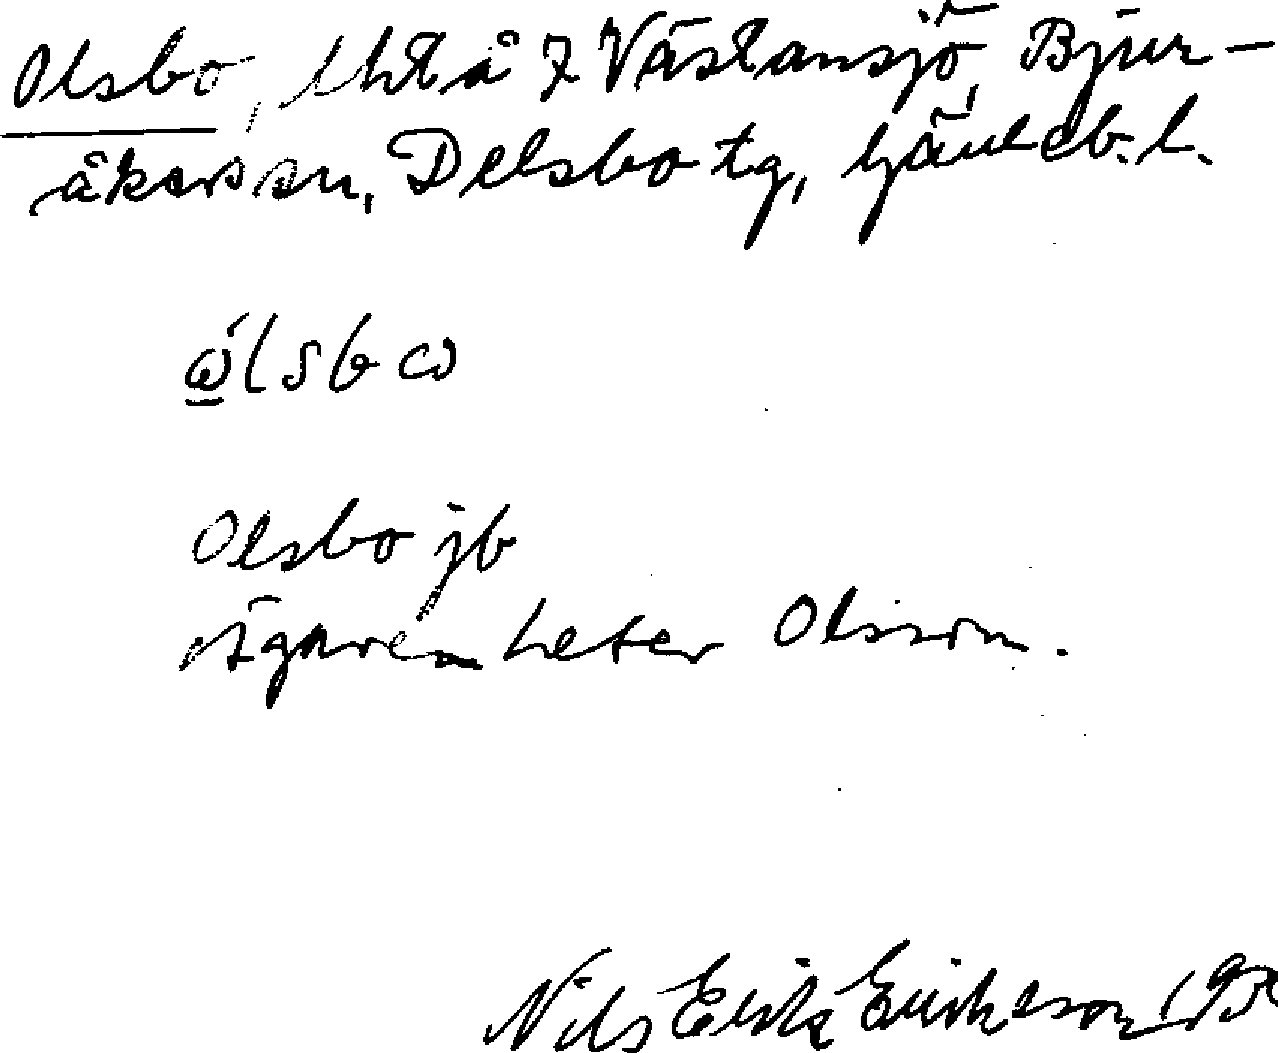 Olsbo, lht å 7 Västansjö, Bjur-
åkers sn, Delsbo tg, Gävleb. l.
ώ̲lsbω
Olsbo jb
Ägaren heter Olsson.
Nils Erik Erikson 195